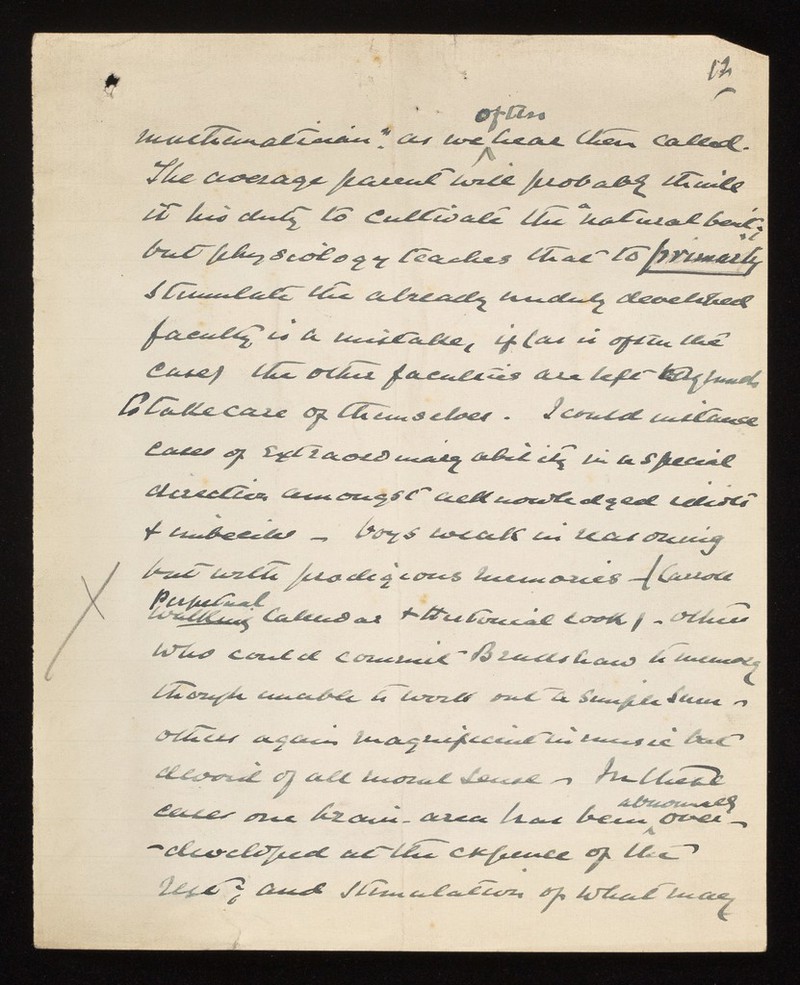 12
often
mathematician", as we hear them called.
The average parent will probably think
it his duty to cultivate the "natural bent";
but physiology teaches that to primarily
stimulate the already unduly developed
faculty is a mistake, if (as is often the
case) the other faculties are left
to take care of themselves. I could instance
cases of extraordinary ability in a special
direction amongst acknowledged idiots
& imbeciles – boys weak in reasoning
but with prodigious memories – (
Perpetual
walking Calendar & Historical book) – others
who could commit Bradshaw to memory
though unable to work out a simple sum –
others again magnificent in music but
devoid of all moral sense – In these
abnormally
cases one brain-area has been over-
-developed at the expense of the
rest; and stimulation of what may